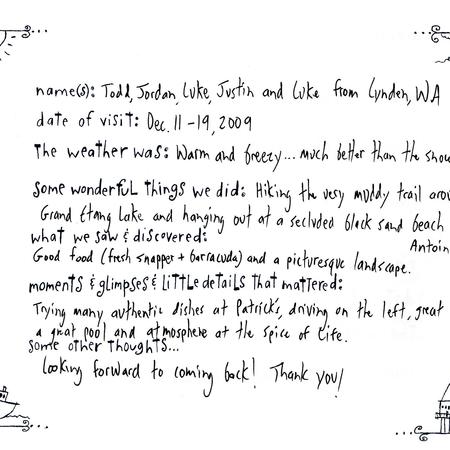 name(s): Todd, Jordan, Luke, Justin and Luke from Lynden, WA
date of visit: Dec. 11-19, 2009
The weather was: Warm and breezy... much better than the snow
some wonderful things we did: Hiking the very muddy trail arou
Grand Etang Lake and hanging out at a secluded black sand beach
what we saw & discovered: Antoin
Good food (fresh snapper + barracuda) and a picturesque landscape.
moments & glimpses & little details that mattered:
Trying many authentic dishes at Patrick's, driving on the left, great
a great pool and atmosphere at the Spice of Life.
some other thoughts...
Looking forward to coming back! Thank you!